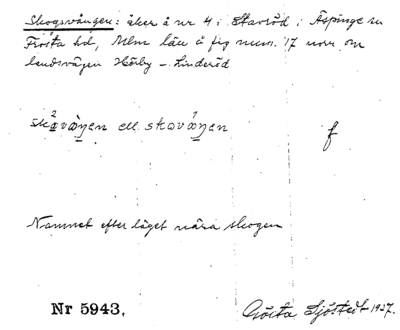 Skogsvången: åker å nr 4 i Stavröd i Äspinge sn
Frosta hd, Mlm län å fig num. 17 norr om
landsvägen Hörby – Linderöd
ell
f
Namnet efter läget nära skogen
Nr 5943.
Gösta Sjöstedt 1927.